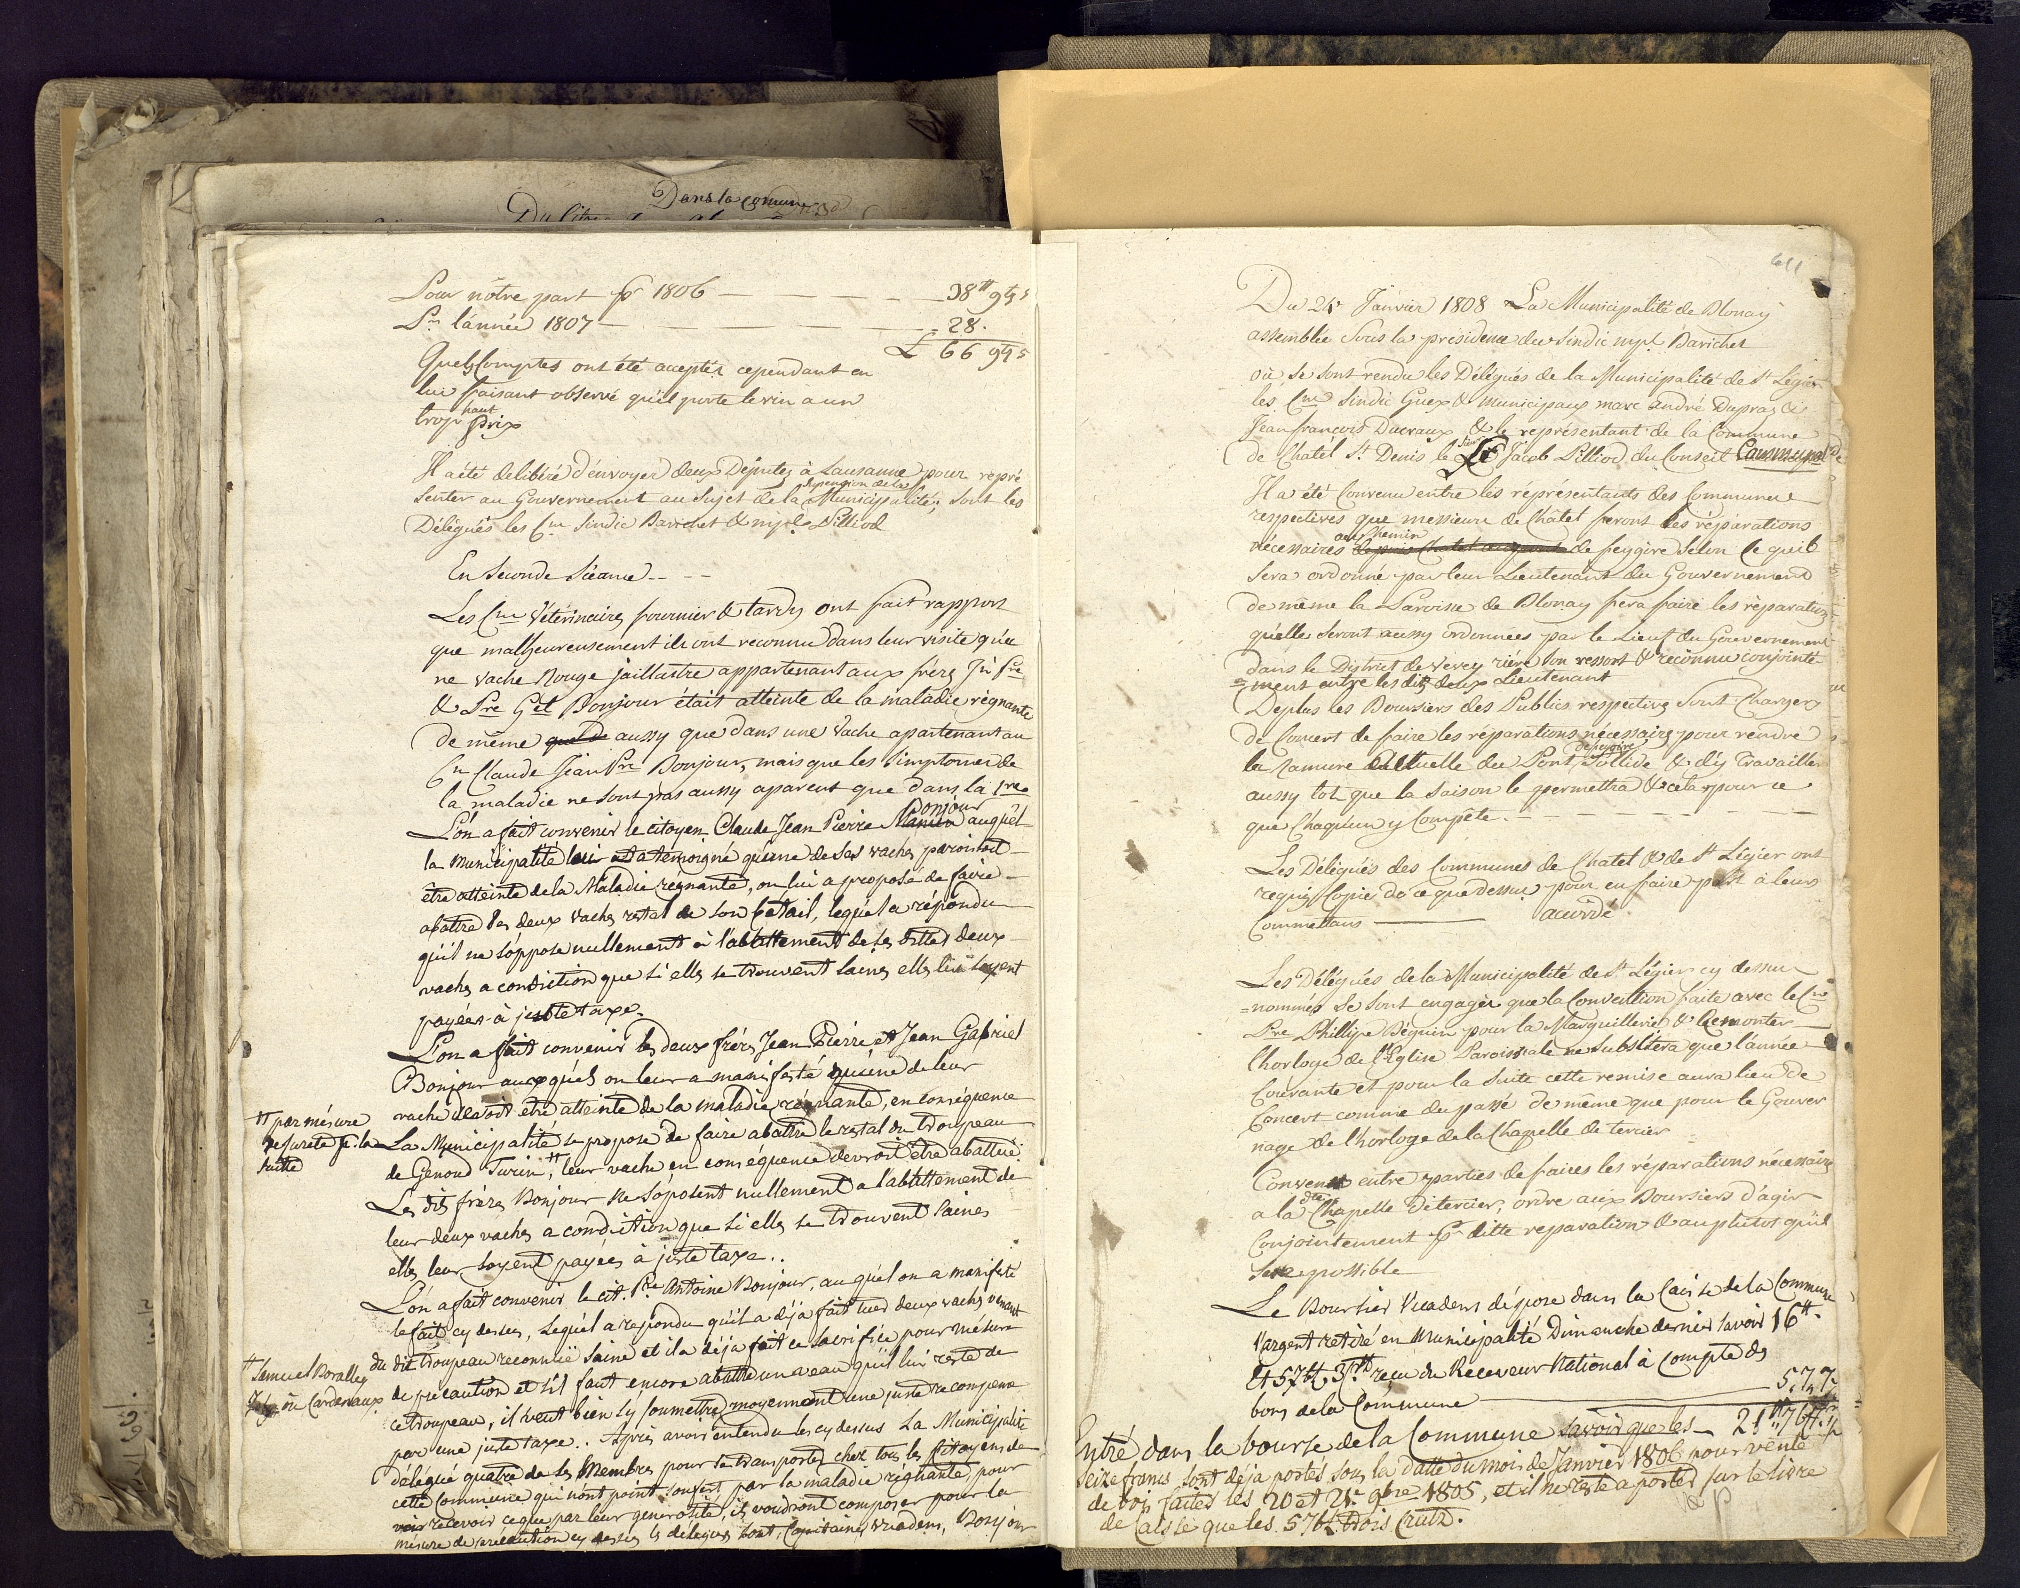 Dans la comune
Pour nôtre part pr 1806 — 38 ₶ 9ß 5
Pr l'année 1807 — 28.
L 66 9ß 5
Quels Comptes ont été acceptés cependant en
lui faisant observé qu'il porte le vin a un
trop haut prix
Il a été deliberé d'envoyer deux Députés à Lausanne pour repré
senter au Gouvernement au sujet de la suspension de la Municipalité; sont les
Délégués les Cns Sindic Barichet & mpl Pilliod
En Seconde Séance
Les Cns Vétérinaires fournier & tardy ont fait rapport
que malheureusement ils ont reconnu dans leur visite qu'u
ne vache Rouge jaillastre appartenant aux frères Jn Pre
& Pre Gel Bonjour était atteinte de la maladie régnante
de même aussy que dans une vache apartenant au
Cn Claude Jean Pre Bonjour, mais que les Simptomes de
la maladie ne sont pas aussy aparent que dans la 1re
L'on a fait convenir le citoyen Claude Jean Pierre Bonjour auquel
la Municipalité lui a temoigné qu'une de ses vaches paroissoit
être atteinte de la Maladie régnante, on lui a proposé de faire
abattre les deux vaches restal de son bétail, lequel a répondu
qu'il ne s'oppose nullement à l'abbattement de ses dittes deux
vaches a condiction que si elles se trouvent saines elles lui soyent
payées à juste taxe.
L'on a fait convenir les deux frères Jean Pierre et Jean Gabriel
Bonjour auxquels on leur a manifesté qu'une de leur
vache devoit être atteinte de la maladie régnante, en conséquence
La Municipalité se propose de faire abattre le restal du troupeau
de Genoud Turin, # leur vache en conséquence devroit être abattue.
# par mésure
de sureté pr la
suitte
Les dits frères Bonjour ne s'oposent nullement a l'abattement de
leur deux vaches a condiction que si elles se trouvent saines
elles leur soyent payées à juste taxe..
L'on a fait convenir le cit. Pre Antoine Bonjour, auquel on a manifesté
le fait cy dessus, Lequel a repondu qu'il a déjà fait tuer deux vaches venant
du dit troupeau reconnue saine et il a déja fait ce sacrifice pour mésure
de précaution et s'il faut encore abattre un veau qu'il lui reste de
ce troupeau, il veut bien s'y soumettre moyennant une juste recompense
par une juste taxe.. Après avoir entendu les cydessus La Municipalité
# Samuel Boralley
délégué quatre de ses Membres pour se transporter chez tous les Citoyens de
cette Commune qui n'ont point souffert par la maladie régnante pour
recevoir ce que par leur generosité, ils voudront composer pour la
mésure de précaution cy dessus les délégués sont, Capitaine Vuadens, Bonjour
Du 25 Janvier 1808 La Municipalité de Blonay
assemblée Sous la présidence du Sindic mpl Barichet
où se sont rendu les Délégués de la Municipalité de St Légier
les Cns Sindic Guex & Municipaux marc andré Dupraz &
Jean françois Ducraux & le représentant de la Commune
de Chatél St Denis le Sieur Jacob Pilliod du Conseil Communal
Il a été Convenu entre les réprésentants des Communes
respectives que messieurs de Châtel feront les réparations
nécessaires au Chemin de feygire selon Ce qu'il
sera ordonné par leur Lieutenant du Gouvernement
de même la Paroisse de Blonay fera faire les réparations
qu'elle seront aussy ordonnées par le Lieut du Gouvernement
dans le District de Vevey riére son ressort & reconnu conjointe
=ment entre les dits deux Lieutenant
Deplus les Boursiers des Publics respectives sont Chargés
de Concert de faire les réparations nécessaires pour rendre
la Ramure actuelle du Pont Sollide & d'y travailler
aussy tot que la saison le permettra & cela pour ce
que Chaqu'un y Compête.
Les Délégués des Communes de Chatel & de St Légier ont
requis Copie de ce que dessus pour en faire part à leurs
Commettans — acordé.
Les Délégués de la Municipalité de St Légier cy dessus
=nommés se sont engagér que la Convention faite avec le Cn
Pre Phillipe Déguin pour la Marguillerie & Remonter
l'horloge de l'Eglise Paroissiale ne subsistera que l'année
Courante et pour la Suite cette remise aura lieu de
Concert comme du passé de même que pour le Gouver
nage de l'horloge de la Chapelle de tercier
Convenu entre parties de faires les réparations nécessaires
a la dte Chapelle de tercier, ordre aux Boursiers d'agir
Conjointement pr ditte reparation & au plutot qu'il
sera possible
Le Boursier Vuadens dépose dans la Caisse de la Commune
l'argent retiré en Municipalité Dimanche dernier savoir 16 ₶.
Et 57 3 reçu du Receveur National à Compte des
bons de la Commune — 5,7,7
Entré dans la bourse de la Commune savoir que les — 21 ₶ 7
seize francs sont déja portés sous la datte du mois de Janvier 1806 pour vente
de bois faites les 20 et 21e 9bre 1805, et il ne reste a porter sur le Livre
de Caisse que les 57 trois Crutz.